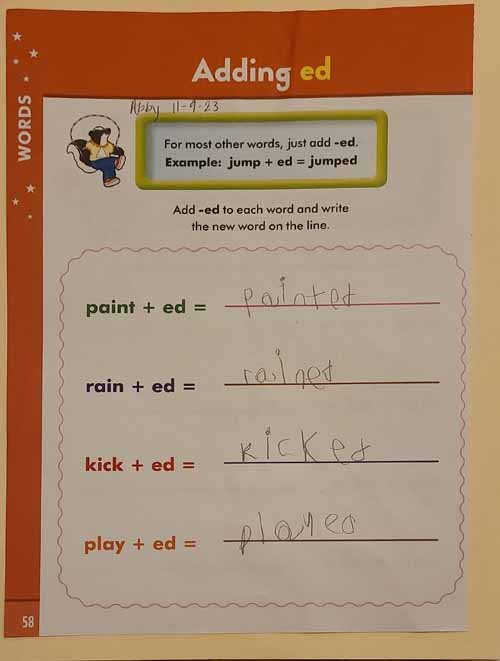 Adding ed
WORDS
Abby 11-9-23
For most other words, just add -ed.
Example: jump + ed = jumped
Add -ed to each word and write
the new word on the line.
paint + ed = painted
rain + ed = rained
kick + ed = kicked
play + ed = played
58